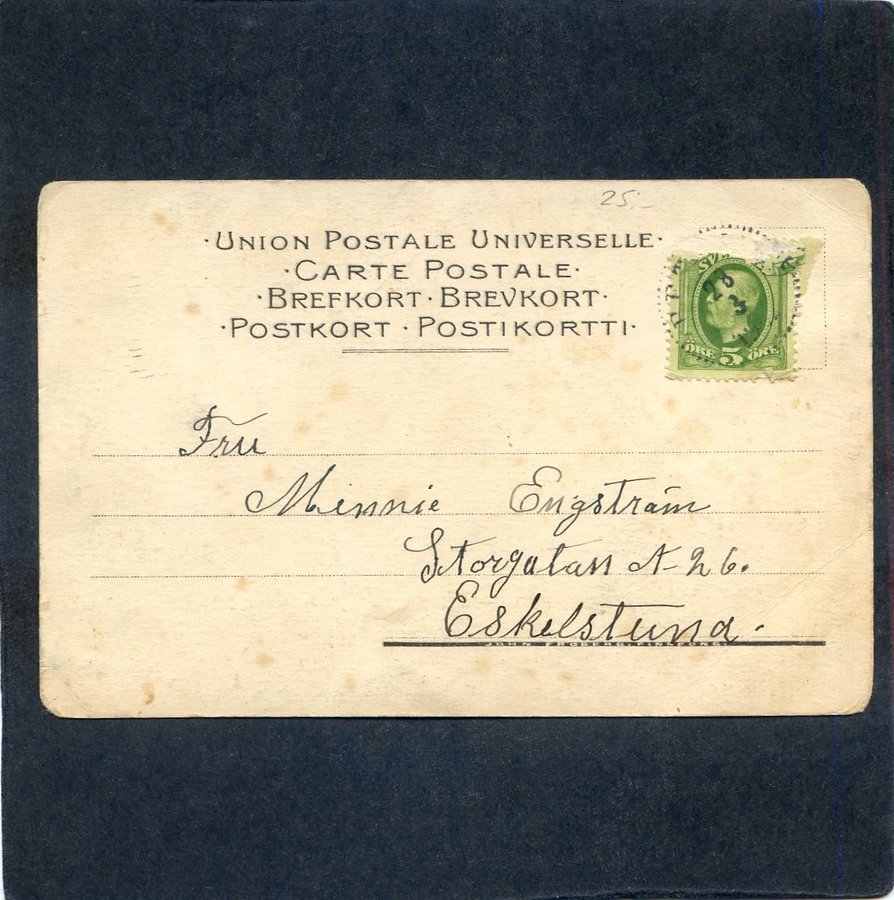 25:-
·UNION POSTALE UNIVERSELLE·
·CARTE POSTALE·
·BREFKORT·BREVKORT·
·POSTKORT·POSTIKORTTI·
28
3
ÖRE 5 ÖRE
Fru
Minnie Engström
Storgatan N 26.
Eskelstuna.
JOHN FRÖBERG, FINSPONG.